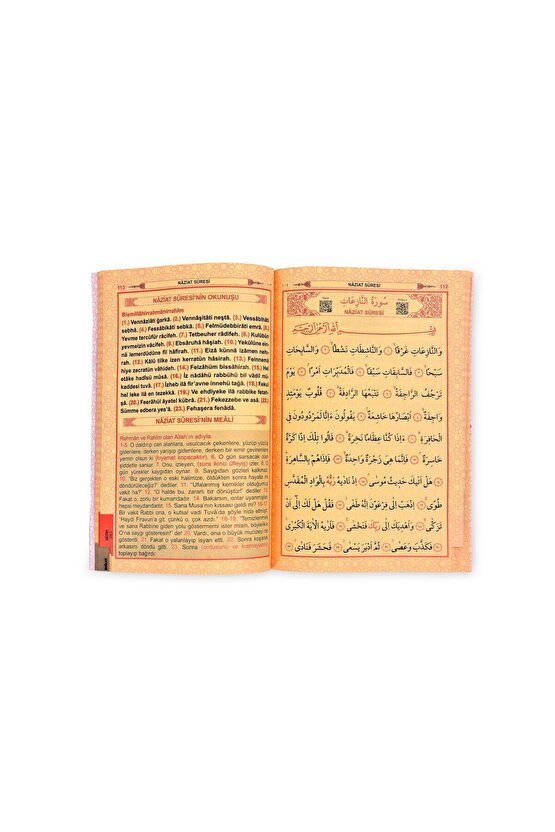 113
NÂZİAT SÛRESİ
NÂZİAT SÛRESİ'NİN OKUNUŞU
Bismillâhirrahmânirrahîm
(1.) Vennâziâti ğarkâ. (2.) Vennâşitâti neştâ. (3.) Vessâbihâti
sebhâ. (4.) Fessâbikâti sebkâ. (5.) Felmüdebbirâti emrâ. (6.)
Yevme tercüfür râcifeh. (7.) Tetbeuher râdifeh. (8.) Kulûbüy
yevmeizin vâcifeh. (9.) Ebsâruhâ hâşiah. (10.) Yekûlûne ein-
nâ lemerdûdûne fil hâfirah. (11.) Eizâ künnâ izâmen neh-
rah. (12.) Kâlû tilke izen kerratün hâsirah. (13.) Feinnemâ
hiye zecratün vâhideh. (14.) Feizâhüm bissâhirah. (15.) Hel
etâke hadîsü mûsâ. (16.) İz nâdâhü rabbühû bil vâdil mü
(17.) İzheb ilâ fir'avne innehû tağâ. (18.) Fekul
hel leke ilâ en tezekkâ. (19.) Ve ehdiyeke ilâ rabbike fetah-
şâ. (20.) Feerâhül âyetel kübrâ. (21.) Fekezzebe ve asâ. (22.)
Sümme edbera yes'â. (23.) Fehaşera fenâdâ.
NÂZİAT SÛRESİ'NİN MEÂLİ
Rahmân ve Rahîm olan Allah'ın adıyla.
1-5. O daldırıp can alanlara, usulcacık çekenlere, yüzüp yüzüp
gidenlere, derken yarışıp gidenlere, derken bir emir çevirenlere
yemin olsun ki (kıyamet kopacaktır). 6. O gün sarsacak olan
şiddetle sarsar. 7. Onu, izleyen, (sura ikinci üfleyiş) izler. 8. O
gün yürekler kaygıdan oynar. 9. Saygısından gözleri kalkmaz.
10. "Biz gerçekten o eski halimize, öldükten sonra hayata mı
döndürüleceğiz?" dediler. 11. "Ufalanmış kemikler olduğumuz
vakit ha?" 12. "O hâlde bu, zararlı bir dönüştür!" dediler. 13.
Fakat o, zorlu bir kumandadır. 14. Bakarsın, onlar uyanmıştır,
hepsi meydandadır. 15. Sana Musa'nın kıssası geldi ya? 16-17.
Bir vakit Rabbi ona, o kutsal vadi Tuvâ'da şöyle nida etmişti:
"Haydi Firavun'a git, çünkü o, çok azdı." 18-19. "Temizlenmek
ve sana Rabbine giden yolu göstermemi ister misin, böylelikle
O'na saygı gösteresin" de! 20. Vardı, ona o büyük mucizeyi de
gösterdi. 21. Fakat o yalanlayıp isyan etti. 22. Sonra koşarak
arkasını döndü gitti. 23. Sonra
toplayıp bağırdı.
NÂZİAT SÛRESİ
112
سُورَةُ النَّازِعَاتِ
NÂZİAT SÛRESİ
بِسْمِ اللّٰهِ الرَّحْمٰنِ الرَّحِيمِ
وَالنَّازِعَاتِ غَرْقًا ﴿١﴾ وَالنَّاشِطَاتِ نَشْطًا ﴿٢﴾ وَالسَّابِحَاتِ
سَبْحًا ﴿٣﴾ فَالسَّابِقَاتِ سَبْقًا ﴿٤﴾ فَالْمُدَبِّرَاتِ اَمْرًا ﴿٥﴾ يَوْمَ
تَرْجُفُ الرَّاجِفَةُ ﴿٦﴾ تَتْبَعُهَا الرَّادِفَةُ ﴿٧﴾ قُلُوبٌ يَوْمَئِذٍ
وَاجِفَةٌ ﴿٨﴾ اَبْصَارُهَا خَاشِعَةٌ ﴿٩﴾ يَقُولُونَ ءَاِنَّا لَمَرْدُودُونَ فِي
الْحَافِرَةِ ﴿١٠﴾ ءَاِذَا كُنَّا عِظَامًا نَخِرَةً ﴿١١﴾ قَالُوا تِلْكَ اِذًا كَرَّةٌ
خَاسِرَةٌ ﴿١٢﴾ فَاِنَّمَا هِيَ زَجْرَةٌ وَاحِدَةٌ ﴿١٣﴾ فَاِذَا هُمْ بِالسَّاهِرَةِ
﴿١٤﴾ هَلْ اَتٰيكَ حَدِيثُ مُوسٰى ﴿١٥﴾ اِذْ نَادٰيهُ رَبُّهُ بِالْوَادِ الْمُقَدَّسِ
طُوًى ﴿١٦﴾ اِذْهَبْ اِلٰى فِرْعَوْنَ اِنَّهُ طَغٰى ﴿١٧﴾ فَقُلْ هَلْ لَكَ اِلٰى اَنْ
تَزَكّٰى ﴿١٨﴾ وَاَهْدِيَكَ اِلٰى رَبِّكَ فَتَخْشٰى ﴿١٩﴾ فَاَرٰيهُ الْاٰيَةَ الْكُبْرٰى
﴿٢٠﴾ فَكَذَّبَ وَعَصٰى ﴿٢١﴾ ثُمَّ اَدْبَرَ يَسْعٰى ﴿٢٢﴾ فَحَشَرَ فَنَادٰى ﴿٢٣﴾